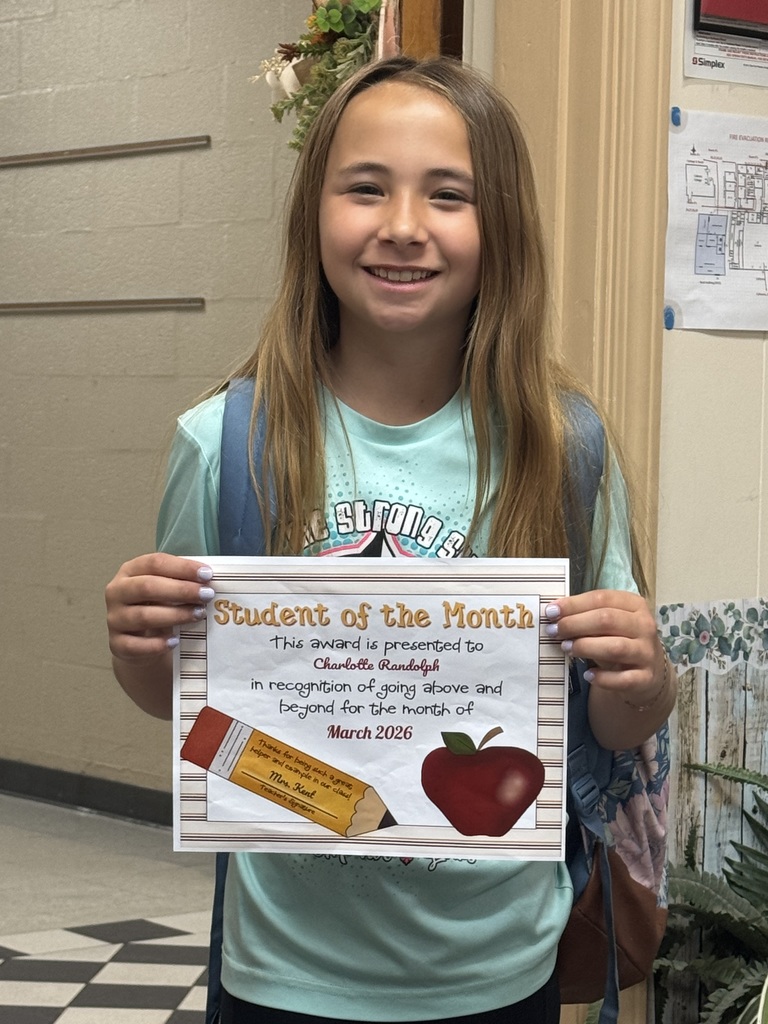 Simplex
FIRE EVACUATION
STRONG
Student of the Month
This award is presented to
Charlotte Randolph
in recognition of going above and
beyond for the month of
March 2026
Thanks for being such a great
helper and example in our class!
Mrs. Kent
Teacher's Signature